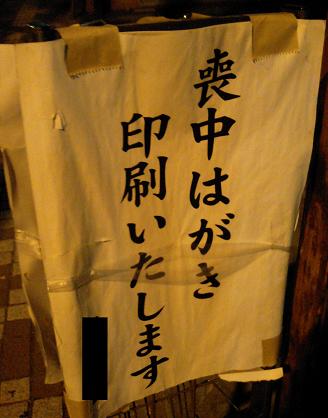 喪中はがき
印刷いたします